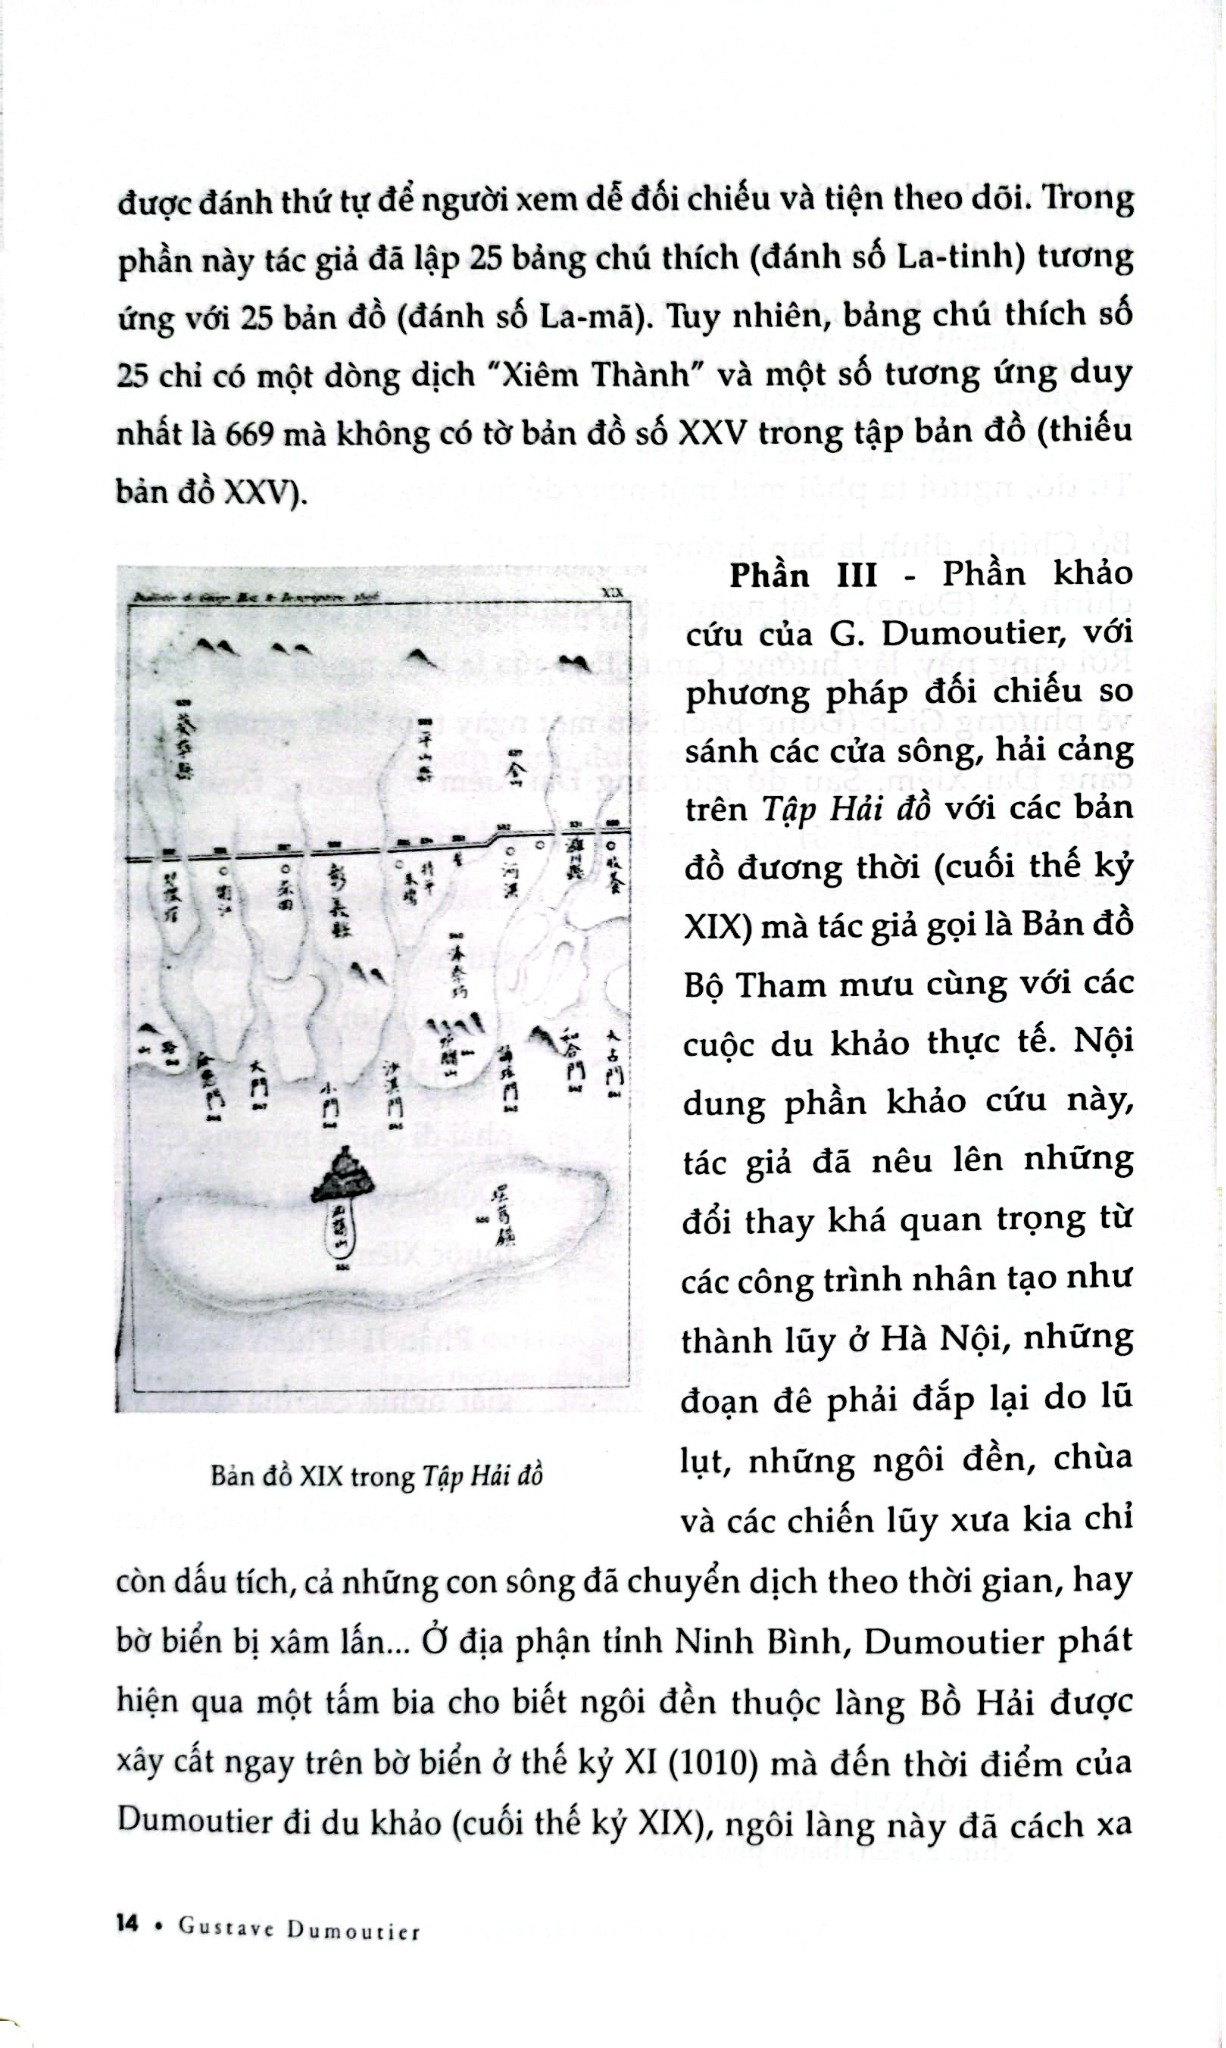 được đánh thứ tự để người xem dễ đối chiếu và tiện theo dõi. Trong
phần này tác giả đã lập 25 bảng chú thích (đánh số La-tinh) tương
ứng với 25 bản đồ (đánh số La-mã). Tuy nhiên, bảng chú thích số
25 chỉ có một dòng dịch "Xiêm Thành" và một số tương ứng duy
nhất là 669 mà không có tờ bản đồ số XXV trong tập bản đồ (thiếu
bản đồ XXV).
XIX
平山
大門
小門
沙淇門
和合門
大占門
Bản đồ XIX trong Tập Hải đồ
Phần III - Phần khảo
cứu của G. Dumoutier, với
phương pháp đối chiếu so
sánh các cửa sông, hải cảng
trên Tập Hải đồ với các bản
đồ đương thời (cuối thế kỷ
XIX) mà tác giả gọi là Bản đồ
Bộ Tham mưu cùng với các
cuộc du khảo thực tế. Nội
dung phần khảo cứu này,
tác giả đã nêu lên những
đổi thay khá quan trọng từ
các công trình nhân tạo như
thành lũy ở Hà Nội, những
đoạn đê phải đắp lại do lũ
lụt, những ngôi đền, chùa
và các chiến lũy xưa kia chỉ
còn dấu tích, cả những con sông đã chuyển dịch theo thời gian, hay
bờ biển bị xâm lấn... Ở địa phận tỉnh Ninh Bình, Dumoutier phát
hiện qua một tấm bia cho biết ngôi đền thuộc làng Bồ Hải được
xây cất ngay trên bờ biển ở thế kỷ XI (1010) mà đến thời điểm của
Dumoutier đi du khảo (cuối thế kỷ XIX), ngôi làng này đã cách xa
14 • Gustave Dumoutier